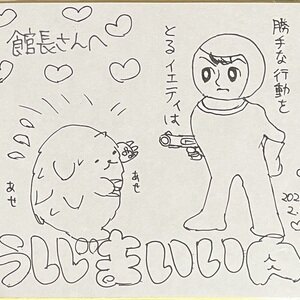 館長さんへ
勝手な行動を
とるイエティは
あせ
あせ
うしじまいい肉
202
2.